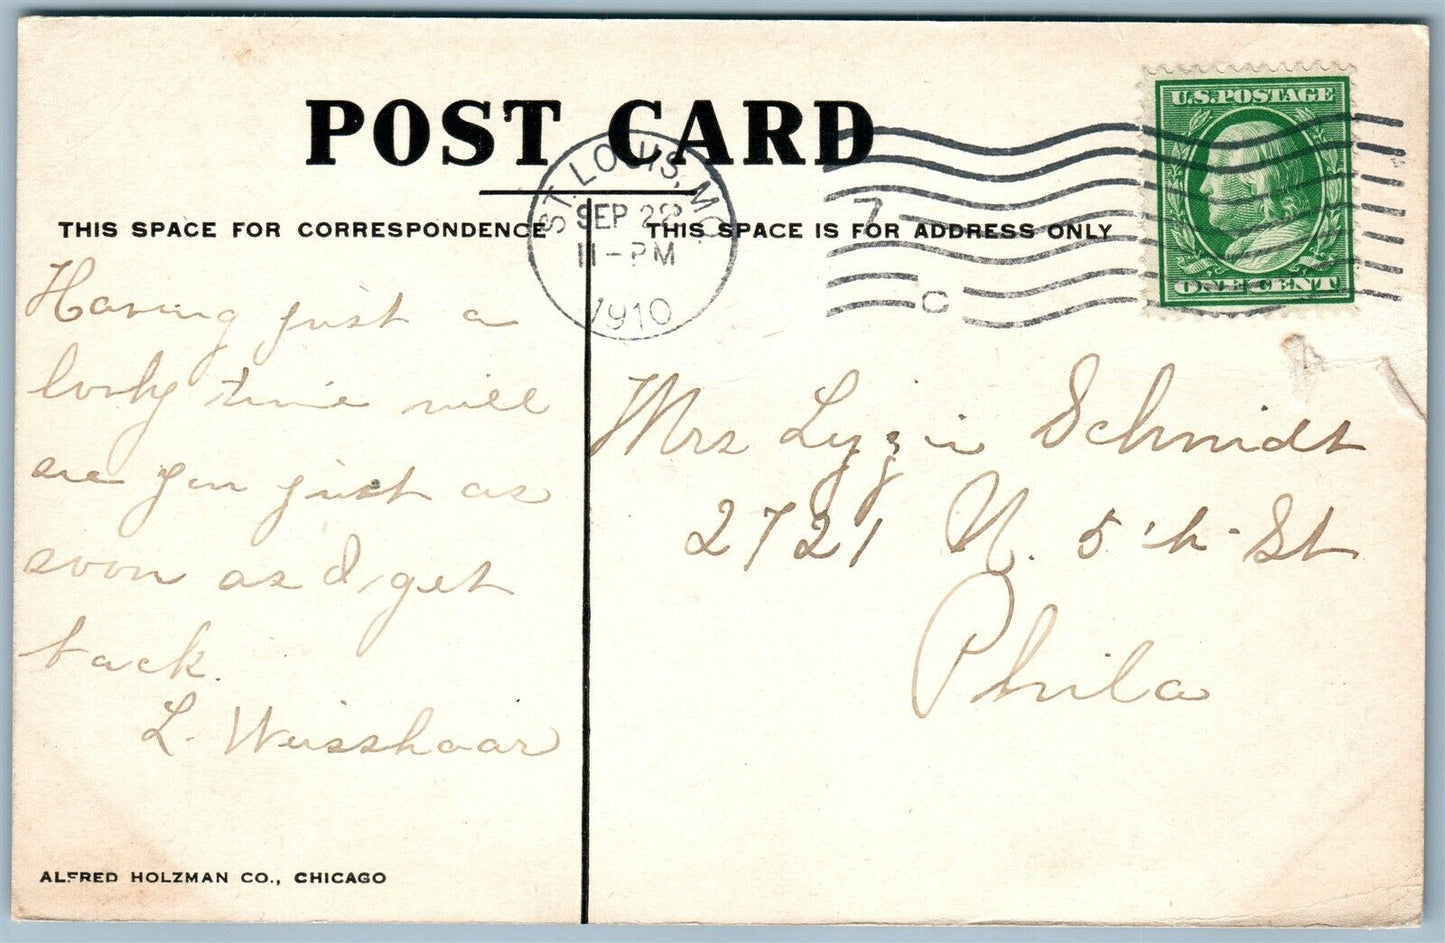 POST CARD
THIS SPACE FOR CORRESPONDENCE
THIS SPACE IS FOR ADDRESS ONLY
ST. LOUIS, MO.
SEP 22
11-PM
1910
7
C
U.S. POSTAGE
ONE CENT
Having just a
lovly time will
see you just as
soon as I get
back.
L. Weisshaar
Mrs Lyzzie Schmidt
2721 N. 5'th St
Phila
ALFRED HOLZMAN CO., CHICAGO